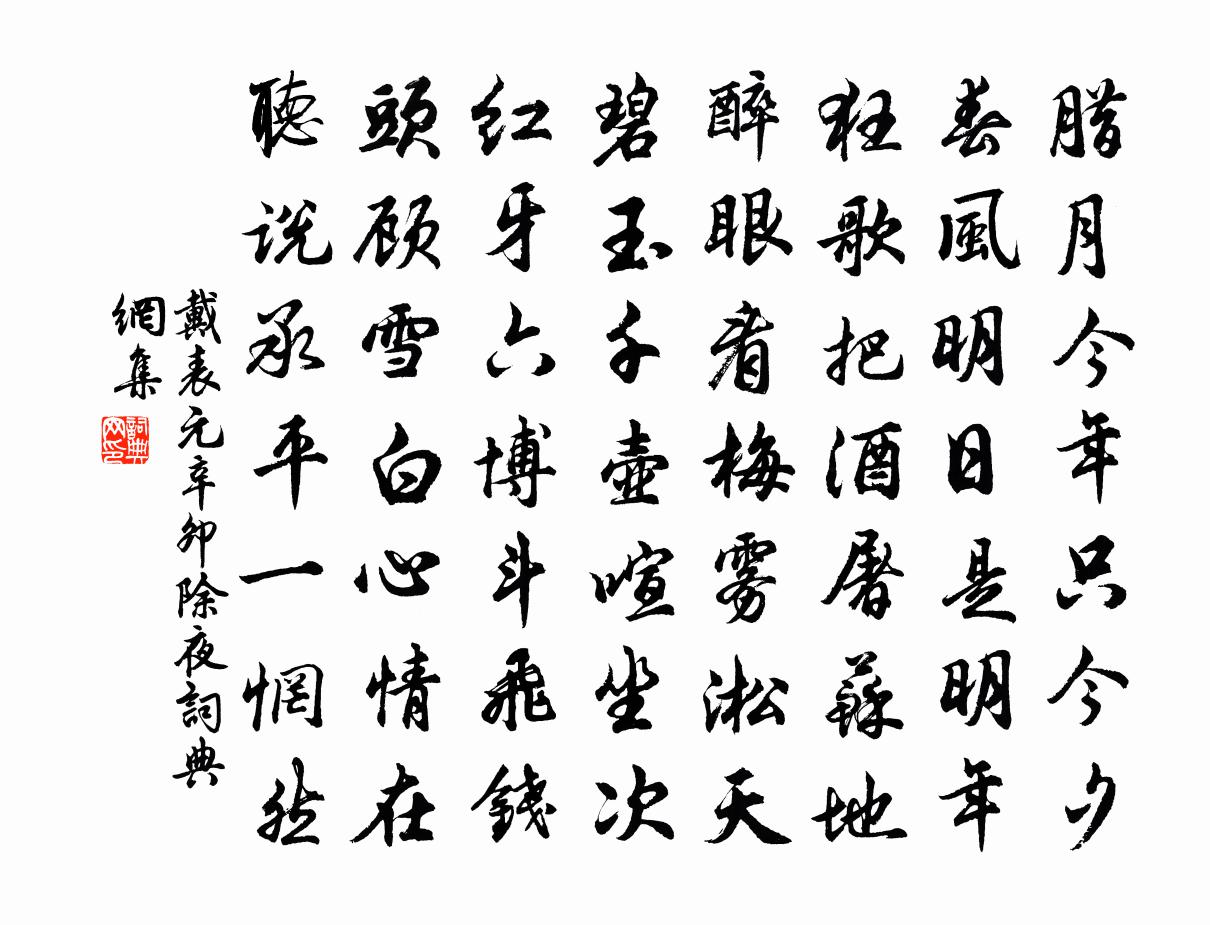 腊月今年只今夕
春風明日是明年
狂歌把酒屠蘇地
醉眼看梅雾淞天
碧玉千壺喧坐次
红牙六博斗飛錢
頭顱雪白心情在
聽説承平一惘然
戴表元辛卯除夜詞典
網集
詞典
网印